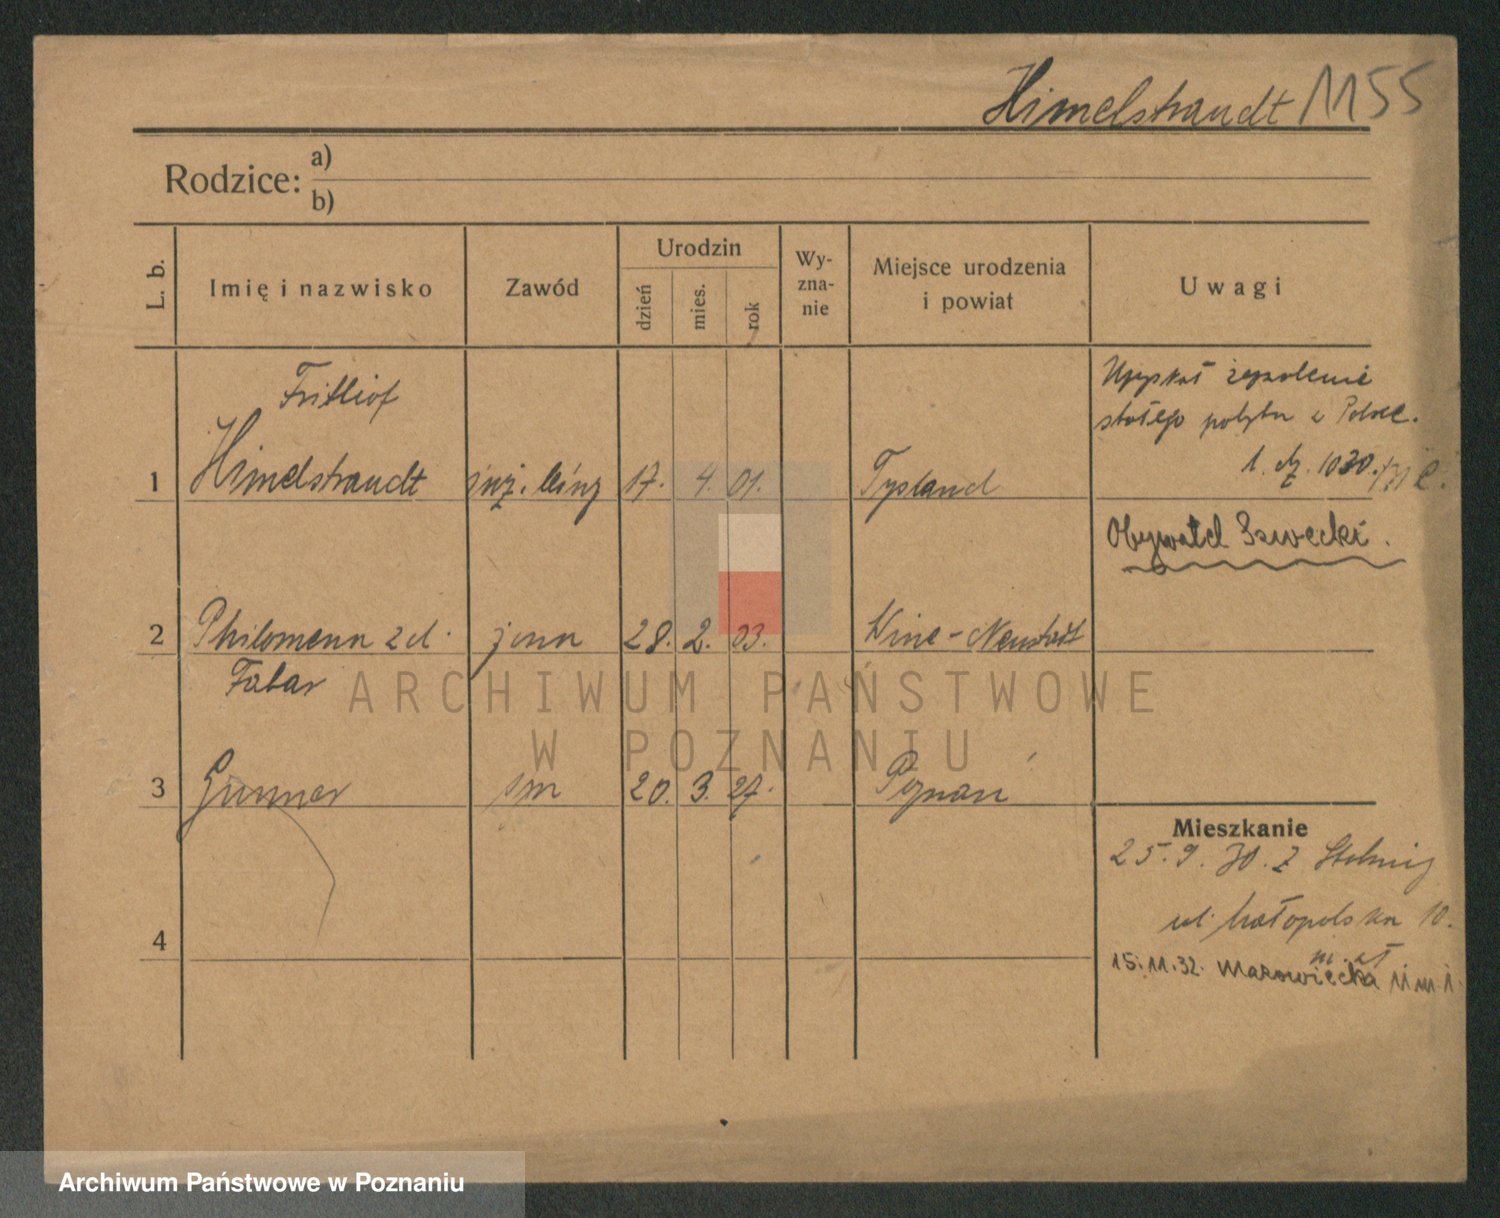 Himelstrandt 1155
Rodzice: a)
b)
L. b.
Imię i nazwisko
Zawód
Urodzin
dzień
mies.
rok
Wy-
zna-
nie
Miejsce urodzenia
i powiat
Uwagi
Fritliof
1 Himelstrandt inż. 17. 4. 01. Tysland
Uzyskał zezwolenie
stałego pobytu w Polsce.
1. dz. 1030.
Obywatel Szwecki.
2 Philomena zd. żona 28. 2. 03. Wine-Neustadt
Fabar
3 Gunnar syn 20. 3. 27. Poznań
Mieszkanie
25. 9. 30. z
ul. Małopolska 10.
4
15.11.32. Mazowiecka 11 m. 1.
ARCHIWUM PAŃSTWOWE
W POZNANIU
Archiwum Państwowe w Poznaniu